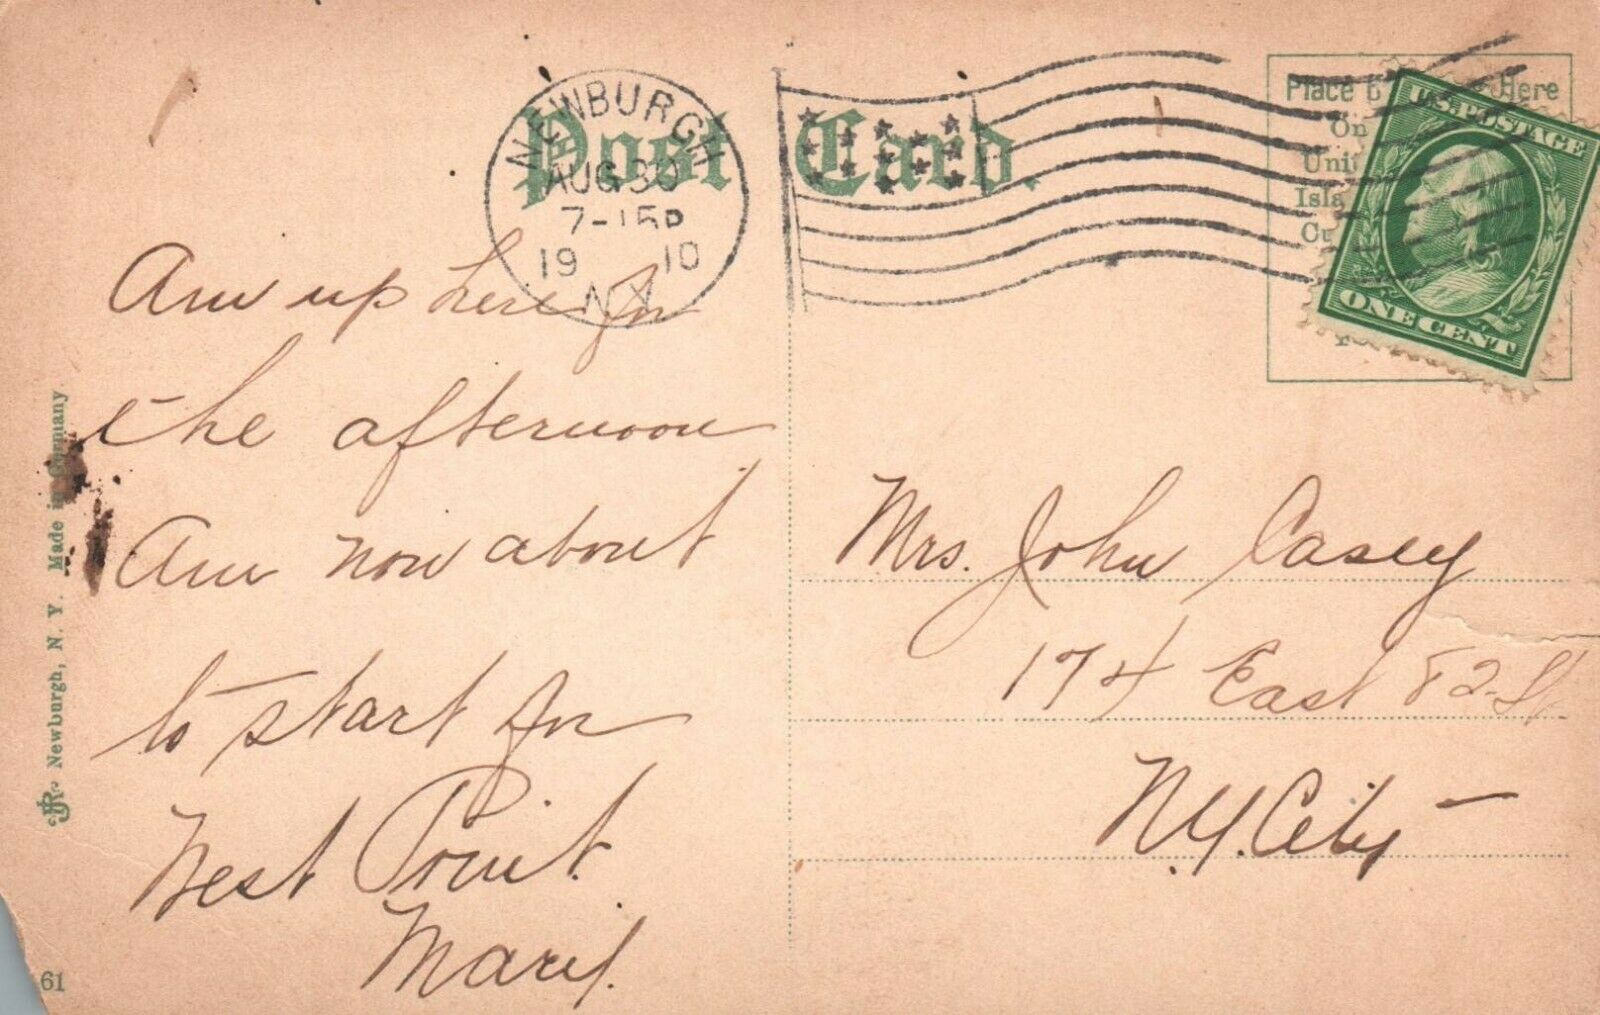 Post Card.
NEWBURGH
AUG 30
7-15P
19 10
N.Y.
Place Here
On
U.S. POSTAGE
ONE CENT
Am up here for
the afternoon
Am now about
to start for
West Point.
Mary.
Mrs. John Casey
174 East 82-St
N.Y. City-
Newburgh, N. Y. Made in Germany
61